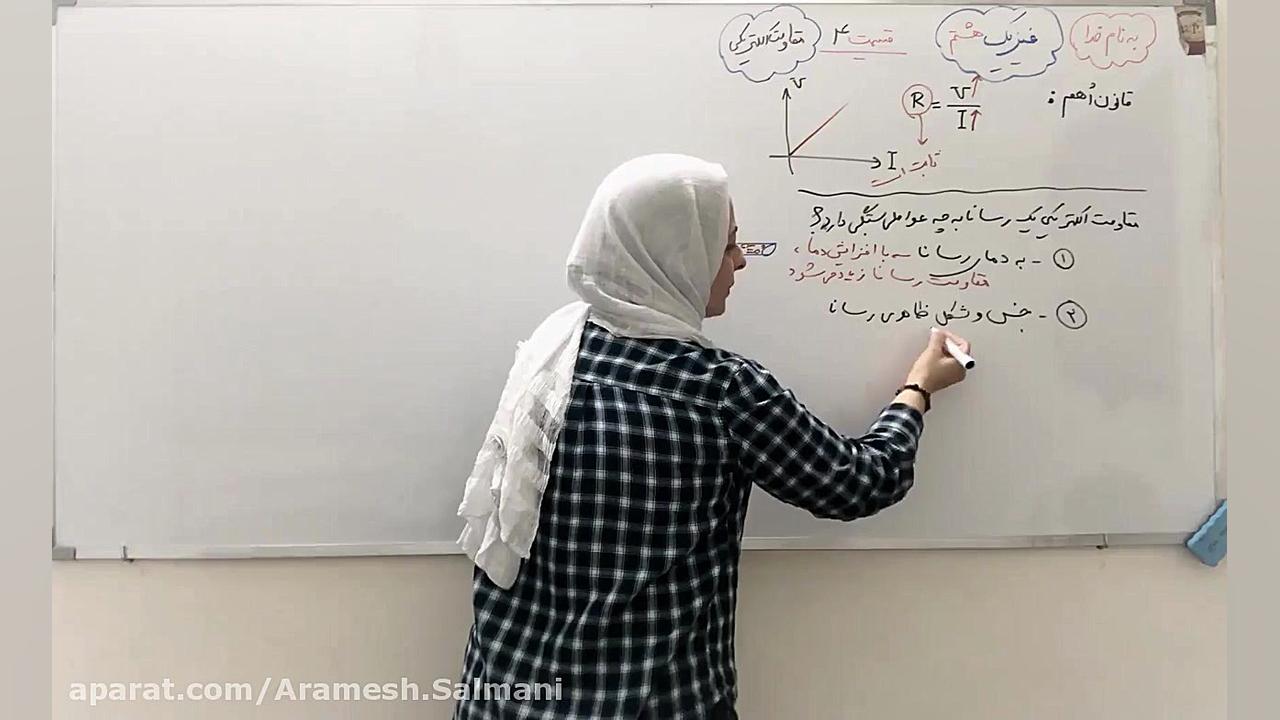 به نام خدا
فیزیک هشتم
قسمت ۴
مقاومت الکتریکی
قانون اُهم :
R = V↑ / I↑
ثابت است
V
I
مقاومت الکتریکی یک رسانا به چه عواملی بستگی دارد؟
۱ - به دمای رسانا → با افزایش دما ،
مقاومت رسانا زیاد می‌شود
۲ - جنس و شکل ظاهری رسانا
aparat.com/Aramesh.Salmani